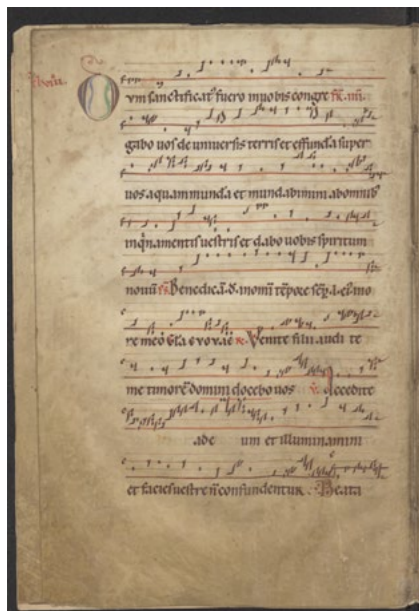 Dum sanctificat' fuero in uobis congre
gabo uos de uniuersis terris et effunda super
uos aquam munda et mundabimini abomnib'
inq'namentis uestris et dabo uobis spiritum
nouū Benedic ā. d. in omi tēpore semp. a. ei. mo
re meo Venite filii audi te
me timorē domini docebo uos v. Accedite
ade um et illuminamini
et facies uestre n̄ confundentur. Beata